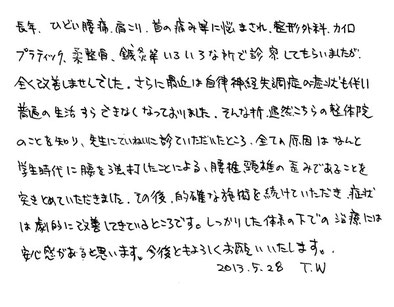 長年、ひどい腰痛、肩こり、首の痛み等に悩まされ、整形外科、カイロ
プラティック、柔整骨、鍼灸等いろいろな所で診察してもらいましたが
全く改善しませんでした。さらに最近は自律神経失調症の症状も伴い
普通の生活すらできなくなっておりました。そんな折、偶然こちらの整体院
のことを知り、先生にていねいに診ていただいたところ、全ての原因はなんと
学生時代に腰を強打したことによる、腰椎、頸椎の歪みであることを
突きとめていただきました。その後、的確な施術を続けていただき、症状
は劇的に改善してきているところです。しっかりした体系の下での治療には
安心感があると思います。今後ともよろしくお願いいたします。
2013.5.28 T.W